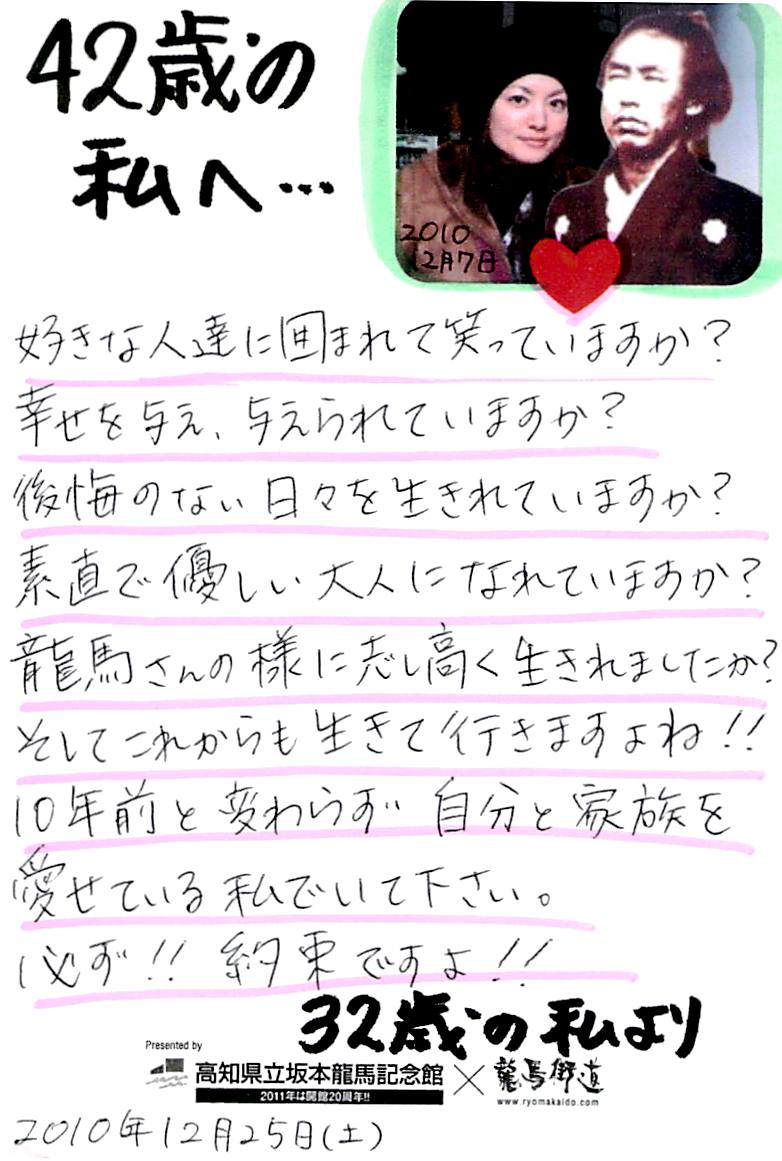 42歳の
私へ…
2010
12月7日
好きな人達に囲まれて笑っていますか?
幸せを与え、与えられていますか?
後悔のない日々を生きれていますか?
素直で優しい大人になれていますか?
龍馬さんの様に志し高く生きれましたか?
そしてこれからも生きて行きますよね!!
10年前と変わらず自分と家族を
愛せている私でいて下さい。
必ず!! 約束ですよ!!
32歳の私より
Presented by
高知県立坂本龍馬記念館×龍馬街道
2011年は開館20周年!!
www.ryomakaido.com
2010年12月25日(土)